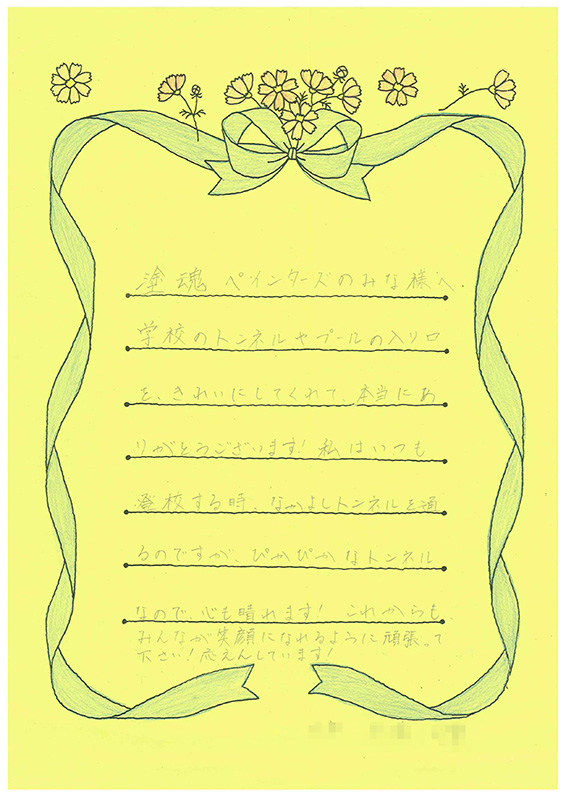 塗魂ペインターズのみな様へ.
学校のトンネルやプールの入り口
を、きれいにしてくれて、本当にあ
りがとうございます!私はいつも
登校する時、なかよしトンネルを通
るのですが、ぴかぴかなトンネル
なので、心も晴れます! これからも
みんなが笑顔になれるように頑張って
下さい!応えんしています!